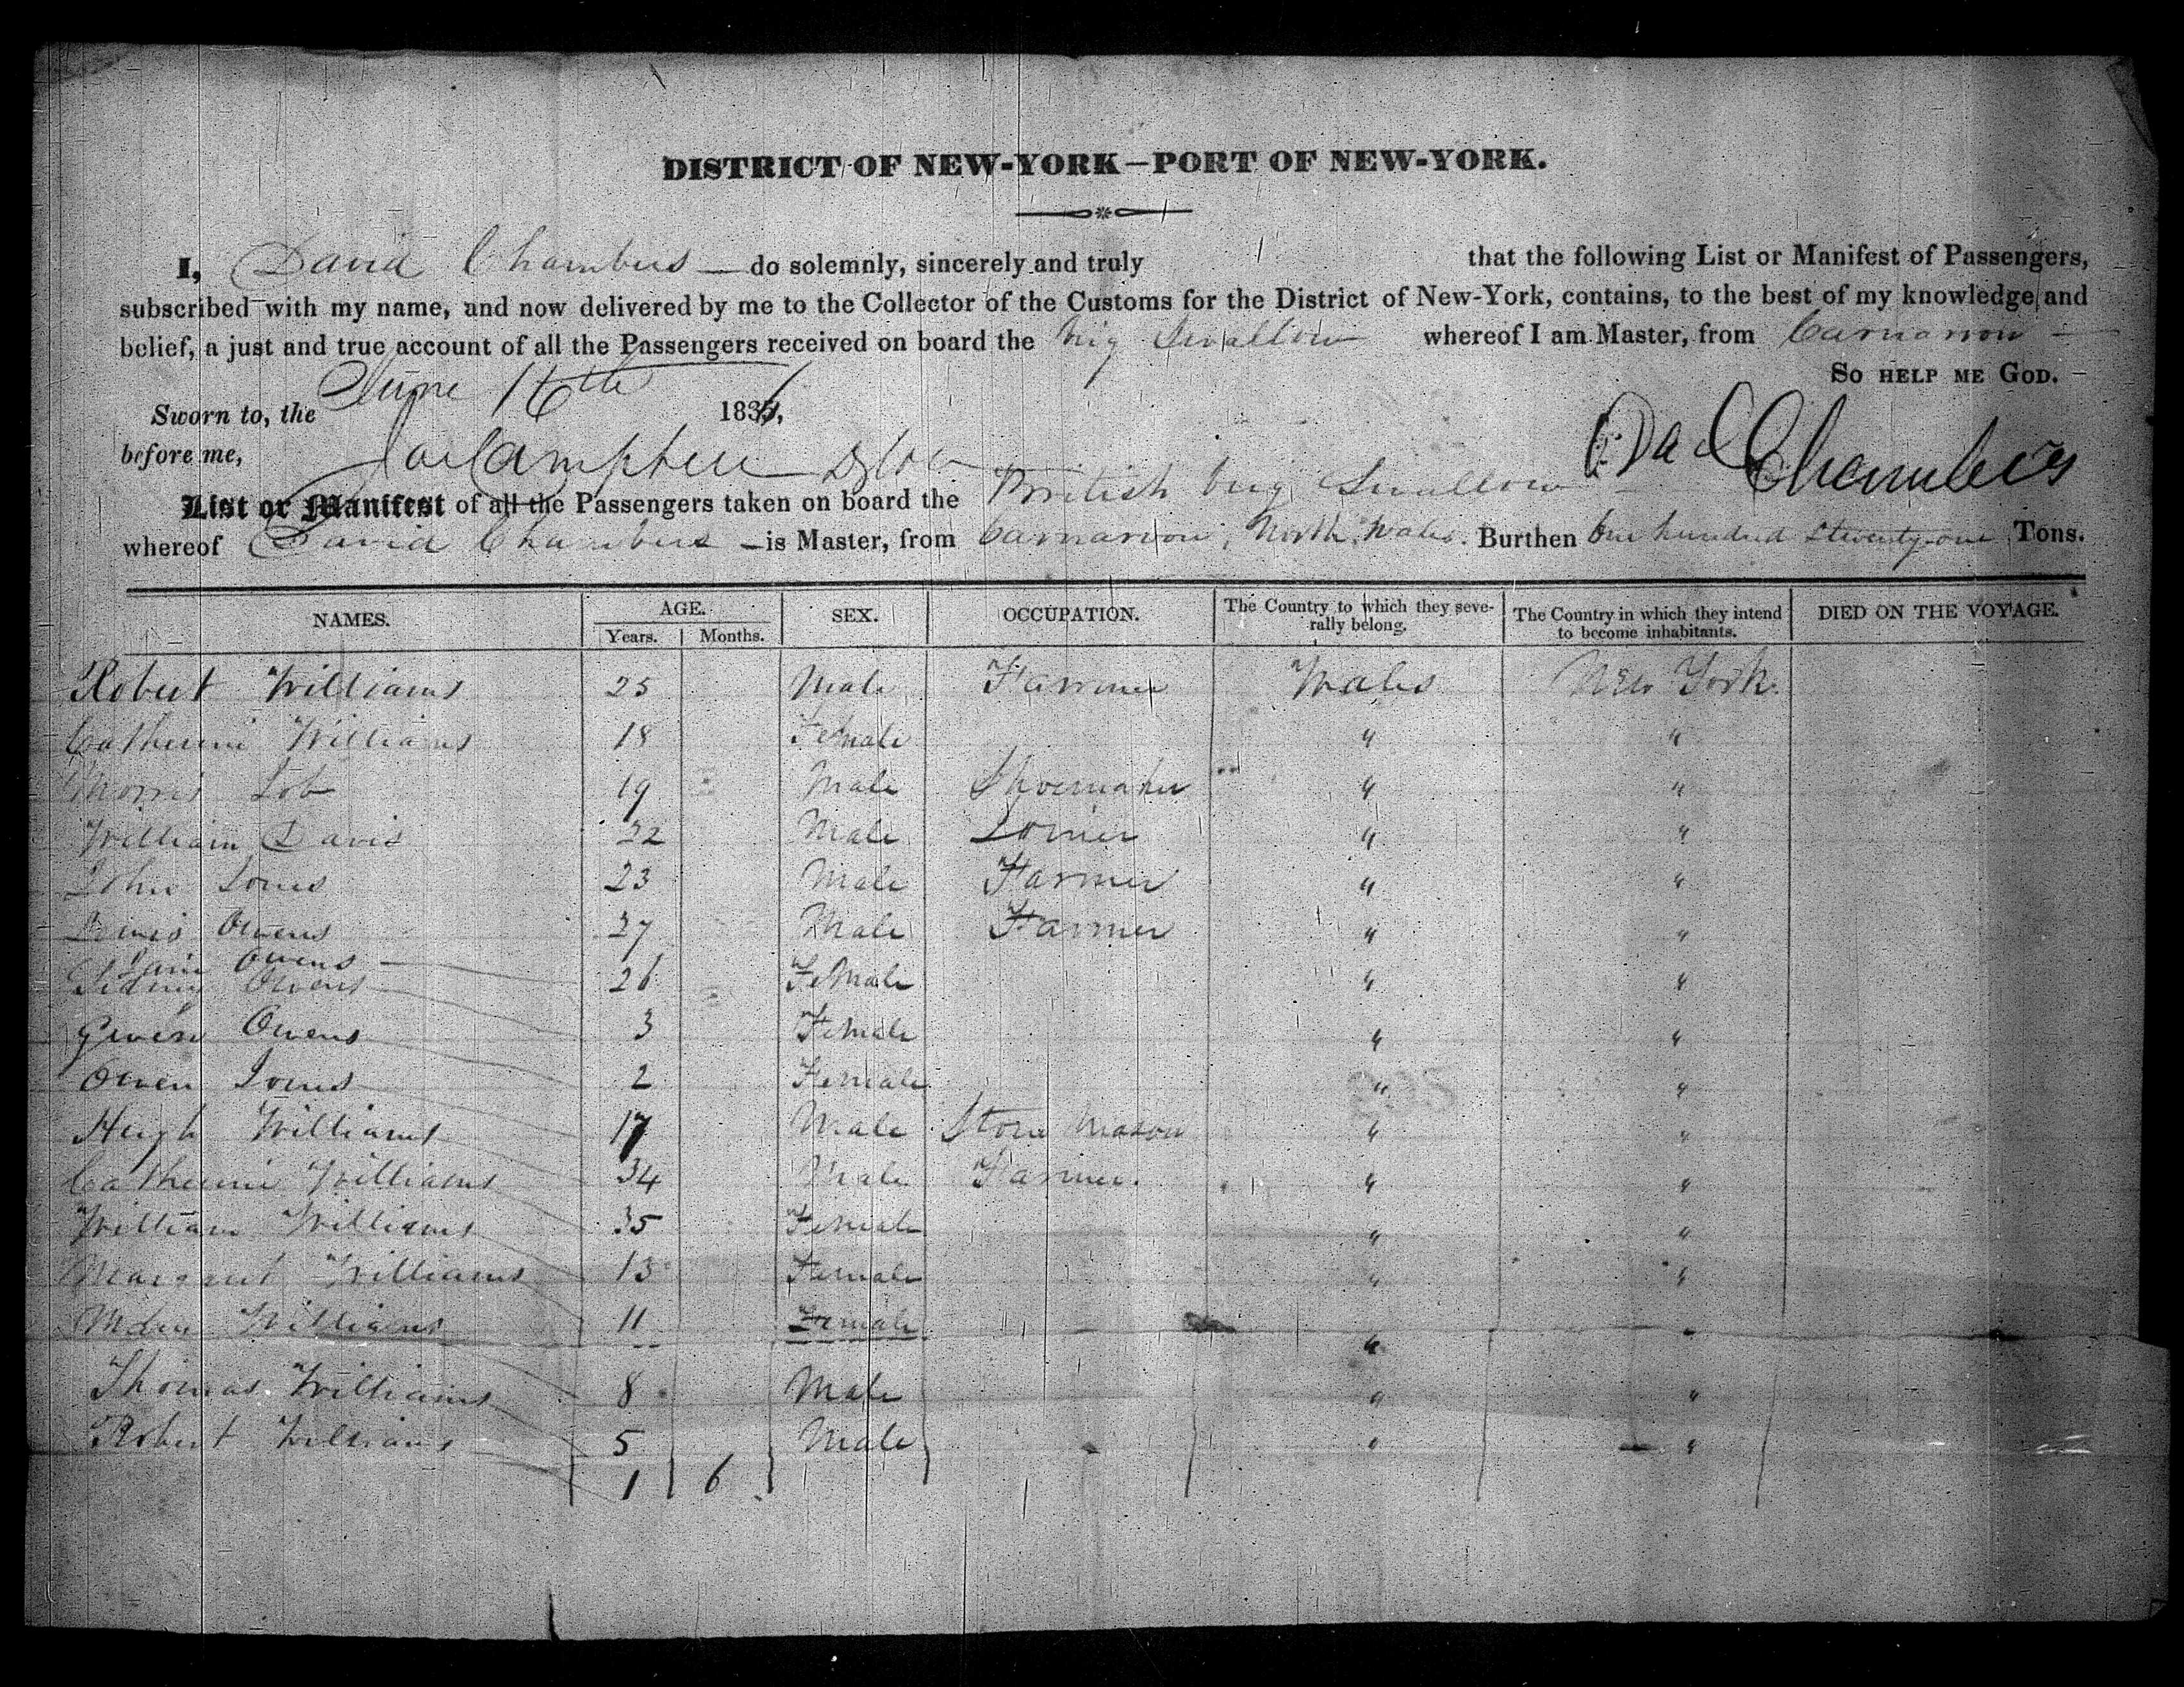 DISTRICT OF NEW-YORK—PORT OF NEW-YORK.
I, David Chambers — do solemnly, sincerely and truly that the following List or Manifest of Passengers,
subscribed with my name, and now delivered by me to the Collector of the Customs for the District of New-York, contains, to the best of my knowledge and
belief, a just and true account of all the Passengers received on board the brig Swallow whereof I am Master, from Carnarvon —
So help me God.
Sworn to, the June 16th 183
before me, Campbell
Dad Chambers
List or Manifest of all the Passengers taken on board the British brig Swallow
whereof David Chambers — is Master, from Carnarvon, North Wales. Burthen One hundred & twenty-one Tons.
NAMES. AGE. SEX. OCCUPATION. The Country to which they seve- The Country in which they intend DIED ON THE VOYAGE.
Years. Months. rally belong. to become inhabitants.
Robert Williams 25 Male Farmer Wales New York.
Catherine Williams 18 Female " "
Morris Lob 19 Male Shoemaker " "
William Davis 22 Male " "
John Jones 23 Male Farmer " "
Lewis Owens 27 Male Farmer " "
Jane Owens —
Sidney Owens 26 Female " "
Gwen Owens 3 Female " "
Owen Jones 2 Female " "
Hugh Williams 17 Male Stone Mason " "
Catherine Williams 34 Male Farmer. " "
William Williams 35 Female " "
Margaret Williams 13 Female " "
Williams 11 Female " "
Thomas Williams 8 Male " "
Robert Williams 5 Male " "
1 6